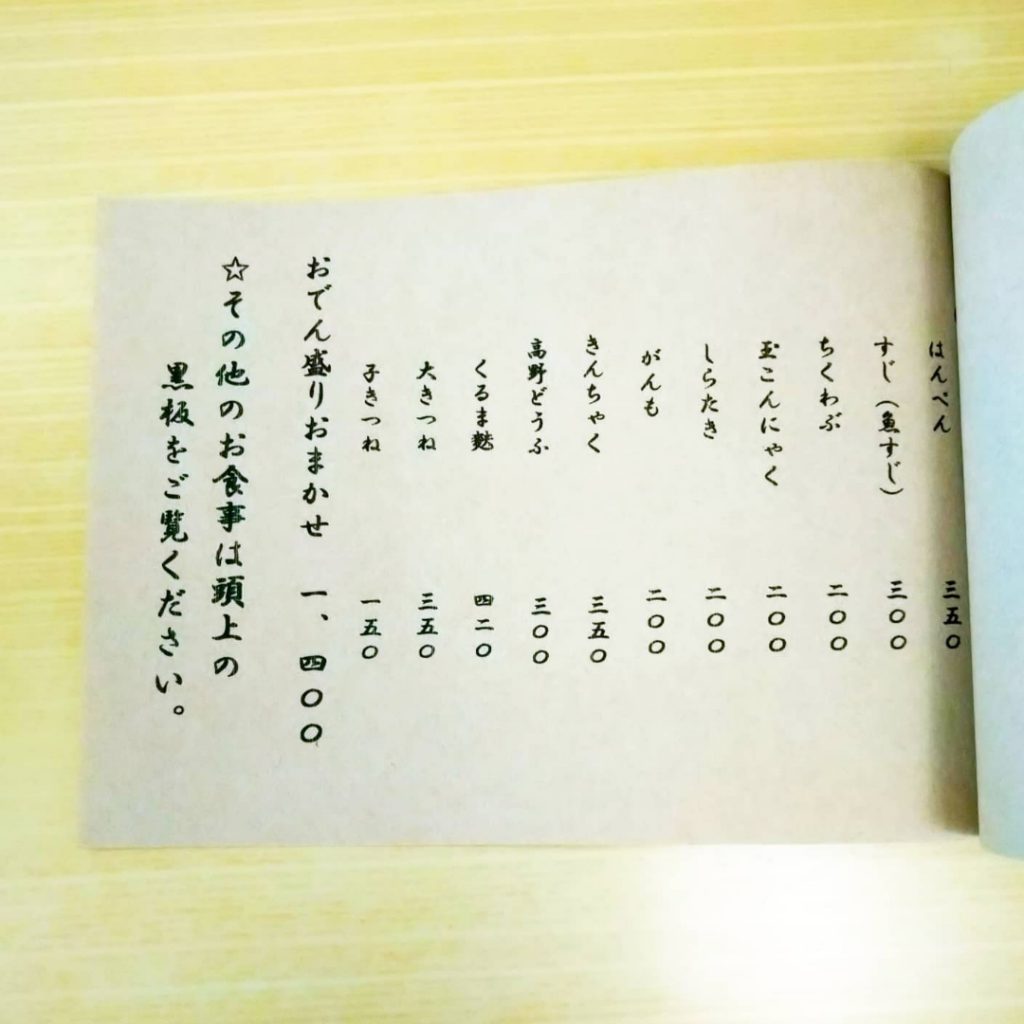 はんぺん 三五〇
すじ（魚すじ） 三〇〇
ちくわぶ 二〇〇
玉こんにゃく 二〇〇
しらたき 二〇〇
がんも 二〇〇
きんちゃく 三五〇
高野どうふ 三〇〇
くるま麩 四二〇
大きつね 三五〇
子きつね 一五〇
おでん盛りおまかせ 一、四〇〇
☆その他のお食事は頭上の
黒板をご覧ください。